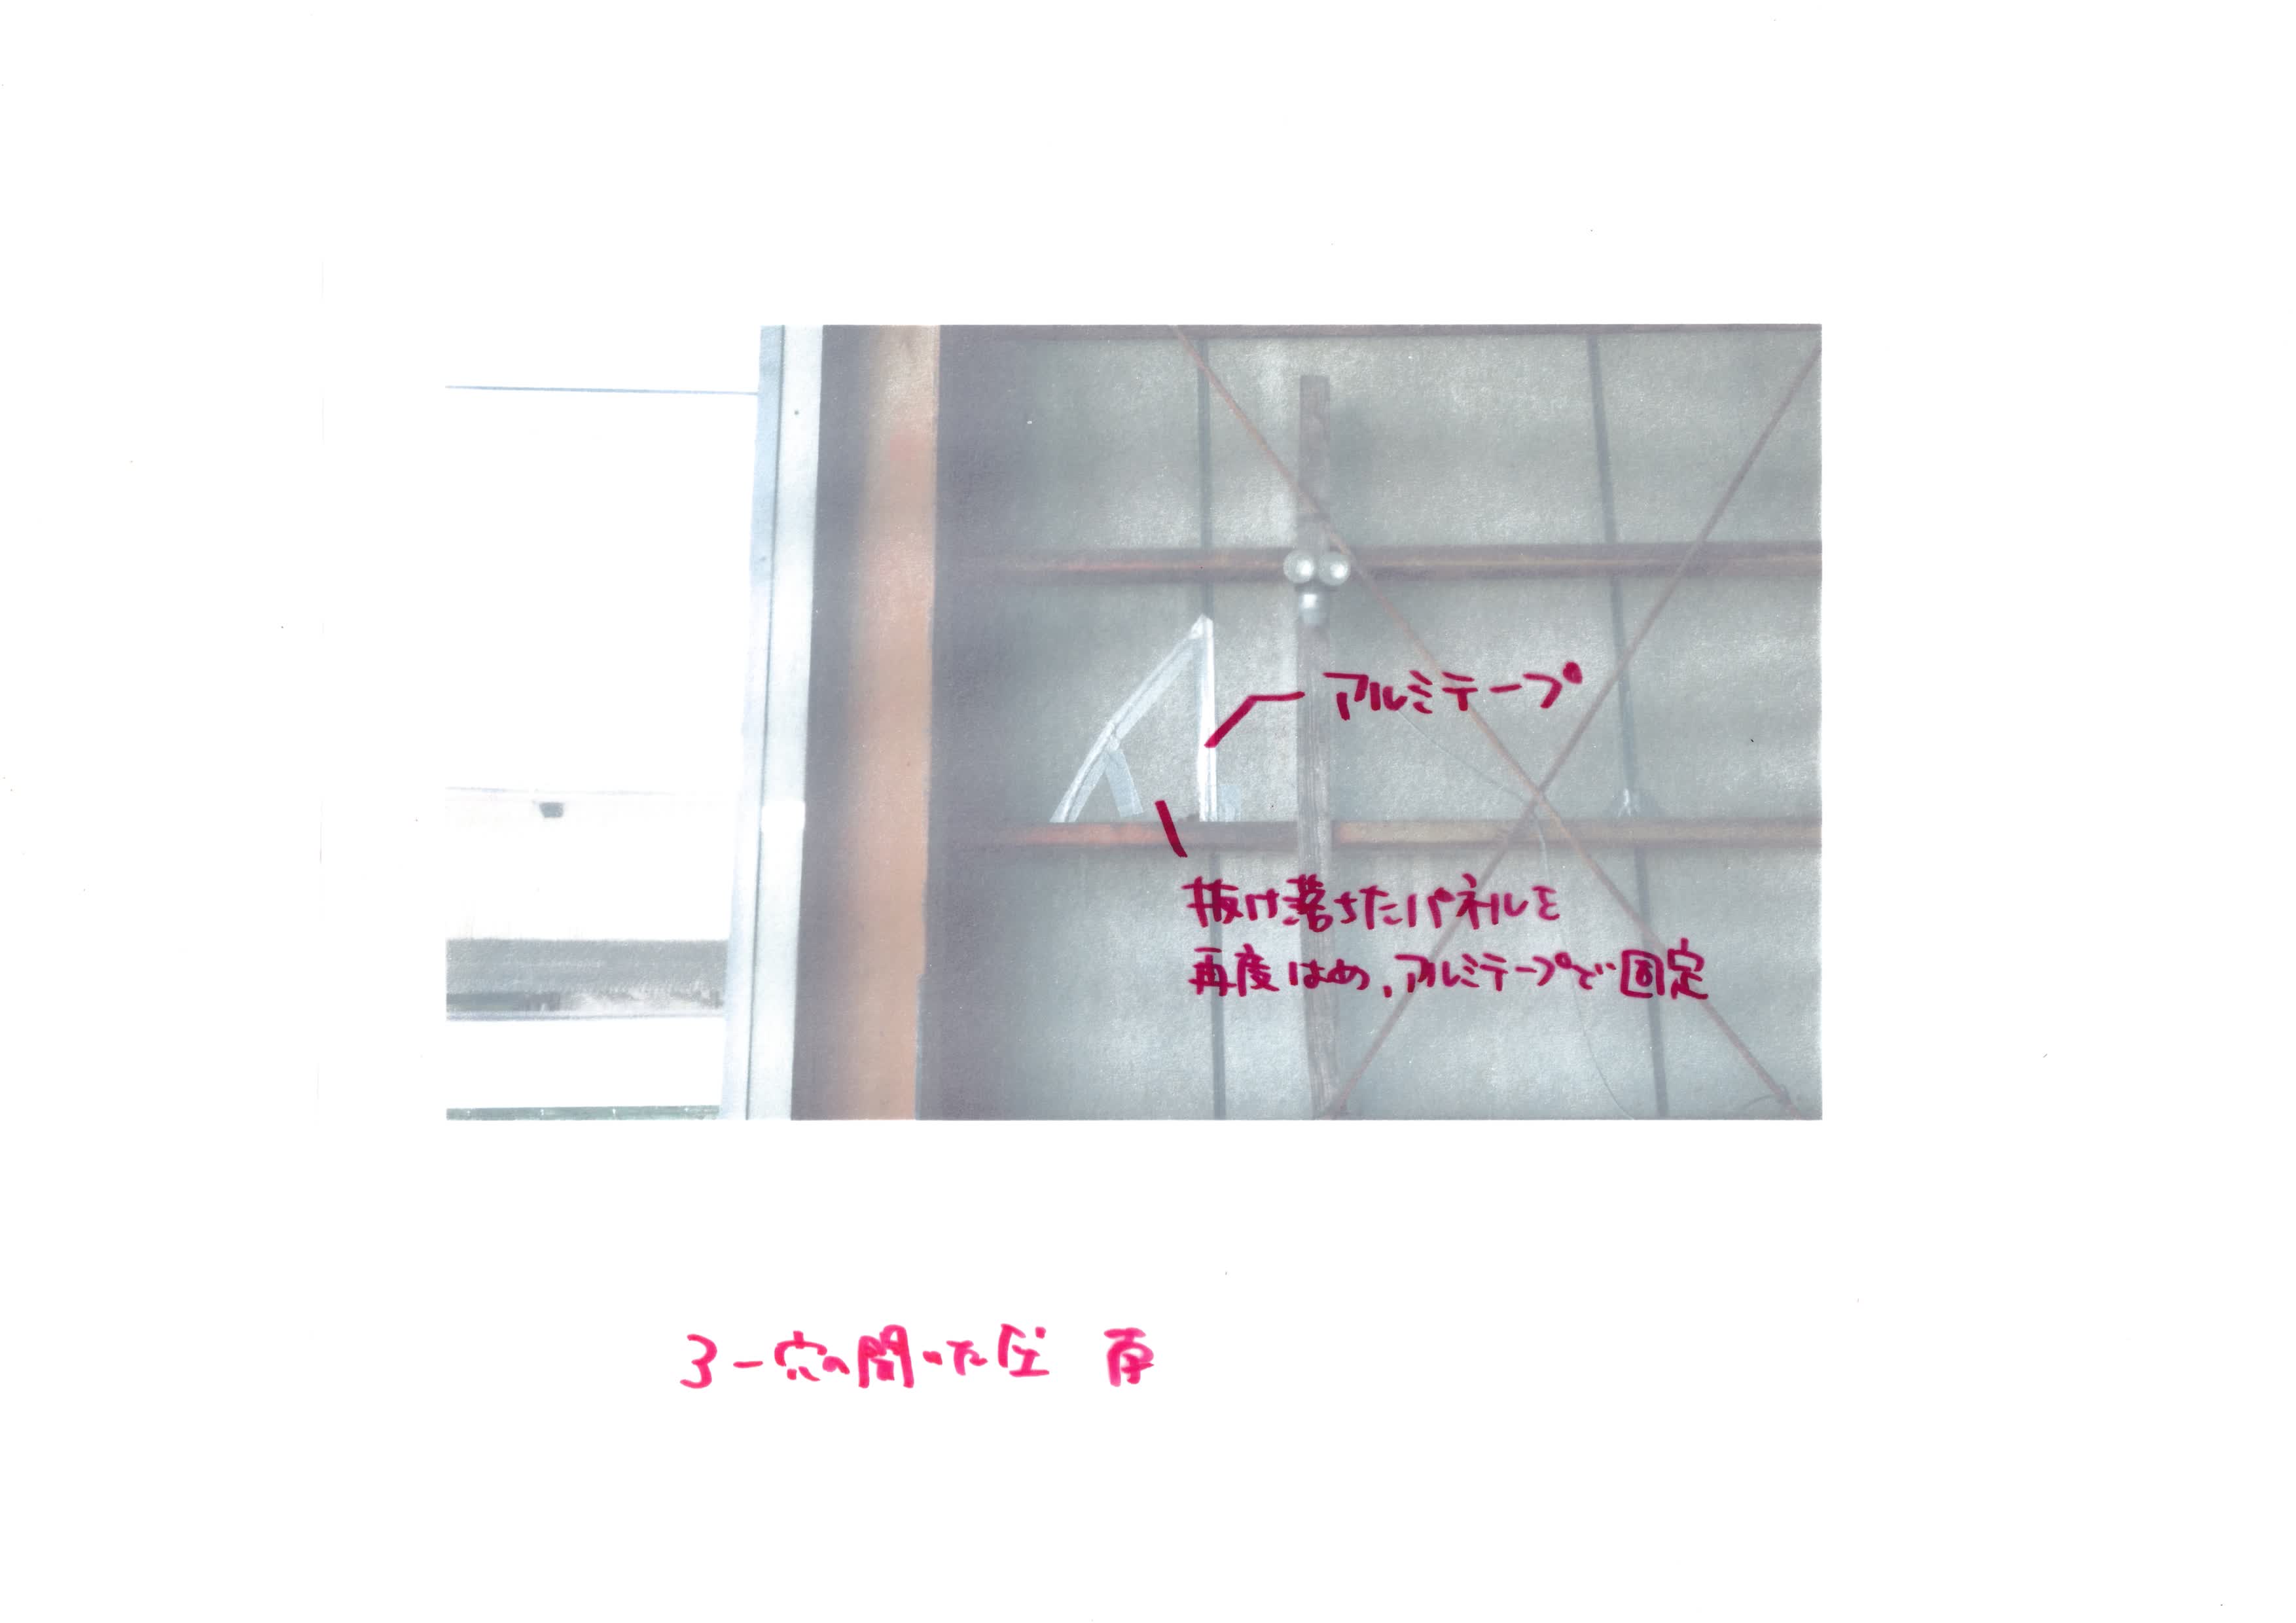 アルミテープ
抜け落ちたパネルを
再度はめ、アルミテープで固定
3-穴の開いた